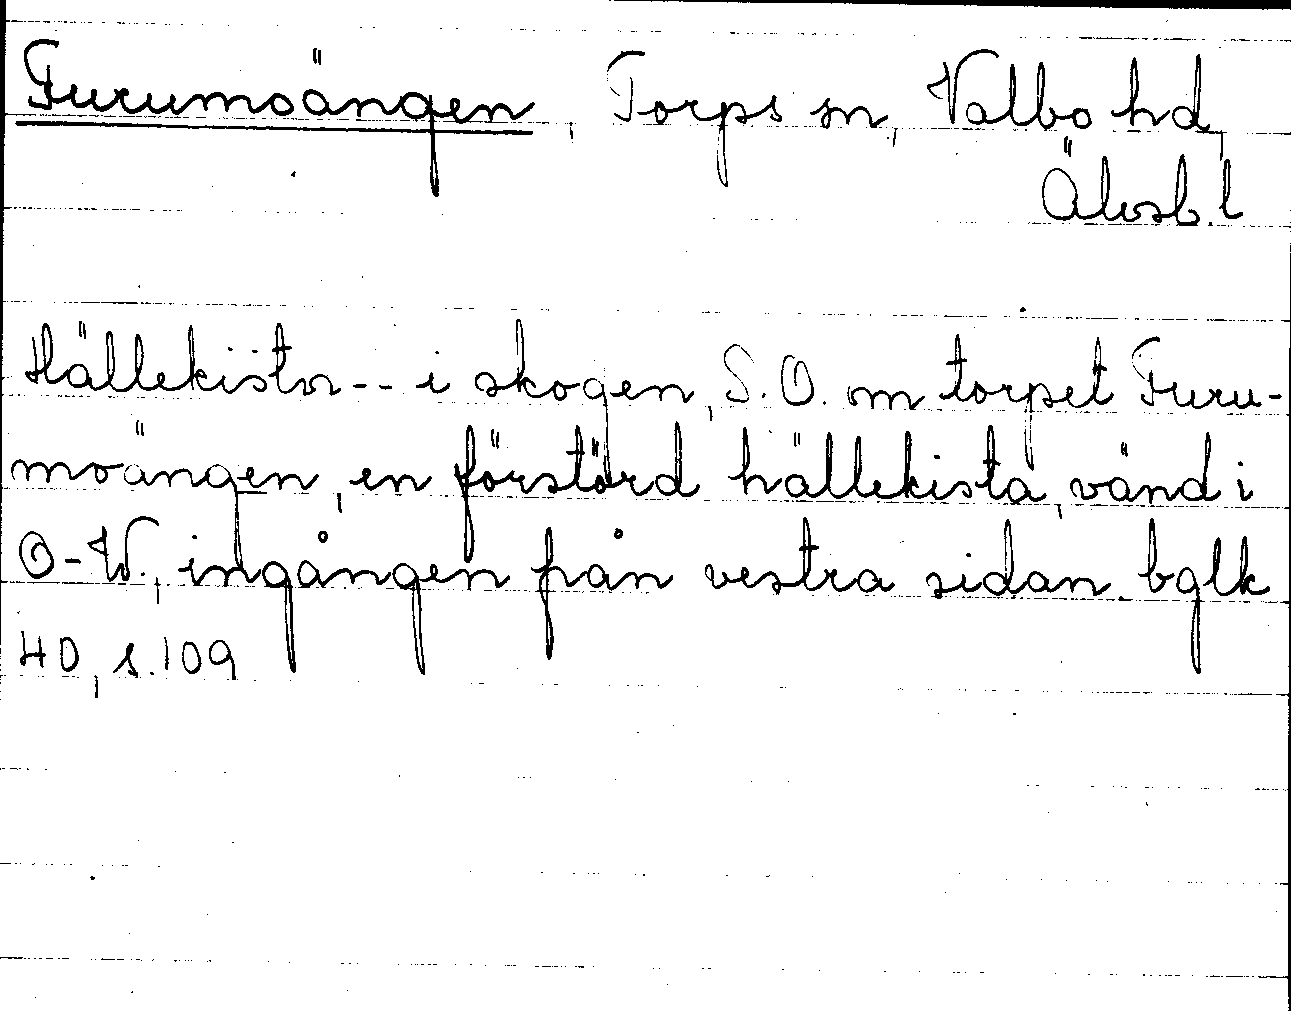 Furumoängen, Torps sn, Valbo hd,
Älvsb. l
Hällekistor -- i skogen, S.O. om torpet Furu-
moängen, en förstörd hällekista, vänd i
O-W., ingången från vestra sidan. bglk
HD, s. 109